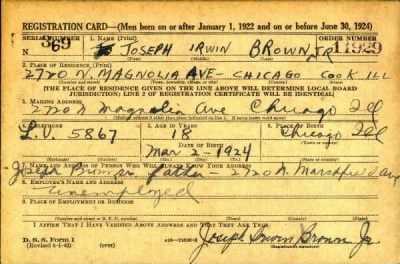 REGISTRATION CARD—(Men born on or after January 1, 1922 and on or before June 30, 1924)
SERIAL NUMBER 1. NAME (Print) ORDER NUMBER
N 369 JOSEPH IRWIN BROWN JR 11929
(First) (Middle) (Last)
2. PLACE OF RESIDENCE (Print)
2720 N. MAGNOLIA AVE- CHICAGO COOK ILL
(Number and street) (Town, township, village, or city) (County) (State)
[THE PLACE OF RESIDENCE GIVEN ON THE LINE ABOVE WILL DETERMINE LOCAL BOARD
JURISDICTION; LINE 2 OF REGISTRATION CERTIFICATE WILL BE IDENTICAL]
3. MAILING ADDRESS
2720 N Magnolia Ave Chicago Ill
4. TELEPHONE 5. AGE IN YEARS 6. PLACE OF BIRTH
5867 18 Chicago
DATE OF BIRTH
Mar 2-1924 Ill
7. NAME AND ADDRESS OF PERSON WHO WILL ALWAYS KNOW YOUR ADDRESS
Joseph Brown sr. father 2720 N. Marshfield Ave
8. EMPLOYER'S NAME AND ADDRESS
Unemployed
9. PLACE OF EMPLOYMENT OR BUSINESS
(Number and street or R. F. D. number) (Town) (County) (State)
I AFFIRM THAT I HAVE VERIFIED ABOVE ANSWERS AND THAT THEY ARE TRUE.
D. S. S. Form 1
(Revised 6-1-42)
Joseph Irwin Brown Jr
(Registrant's signature)